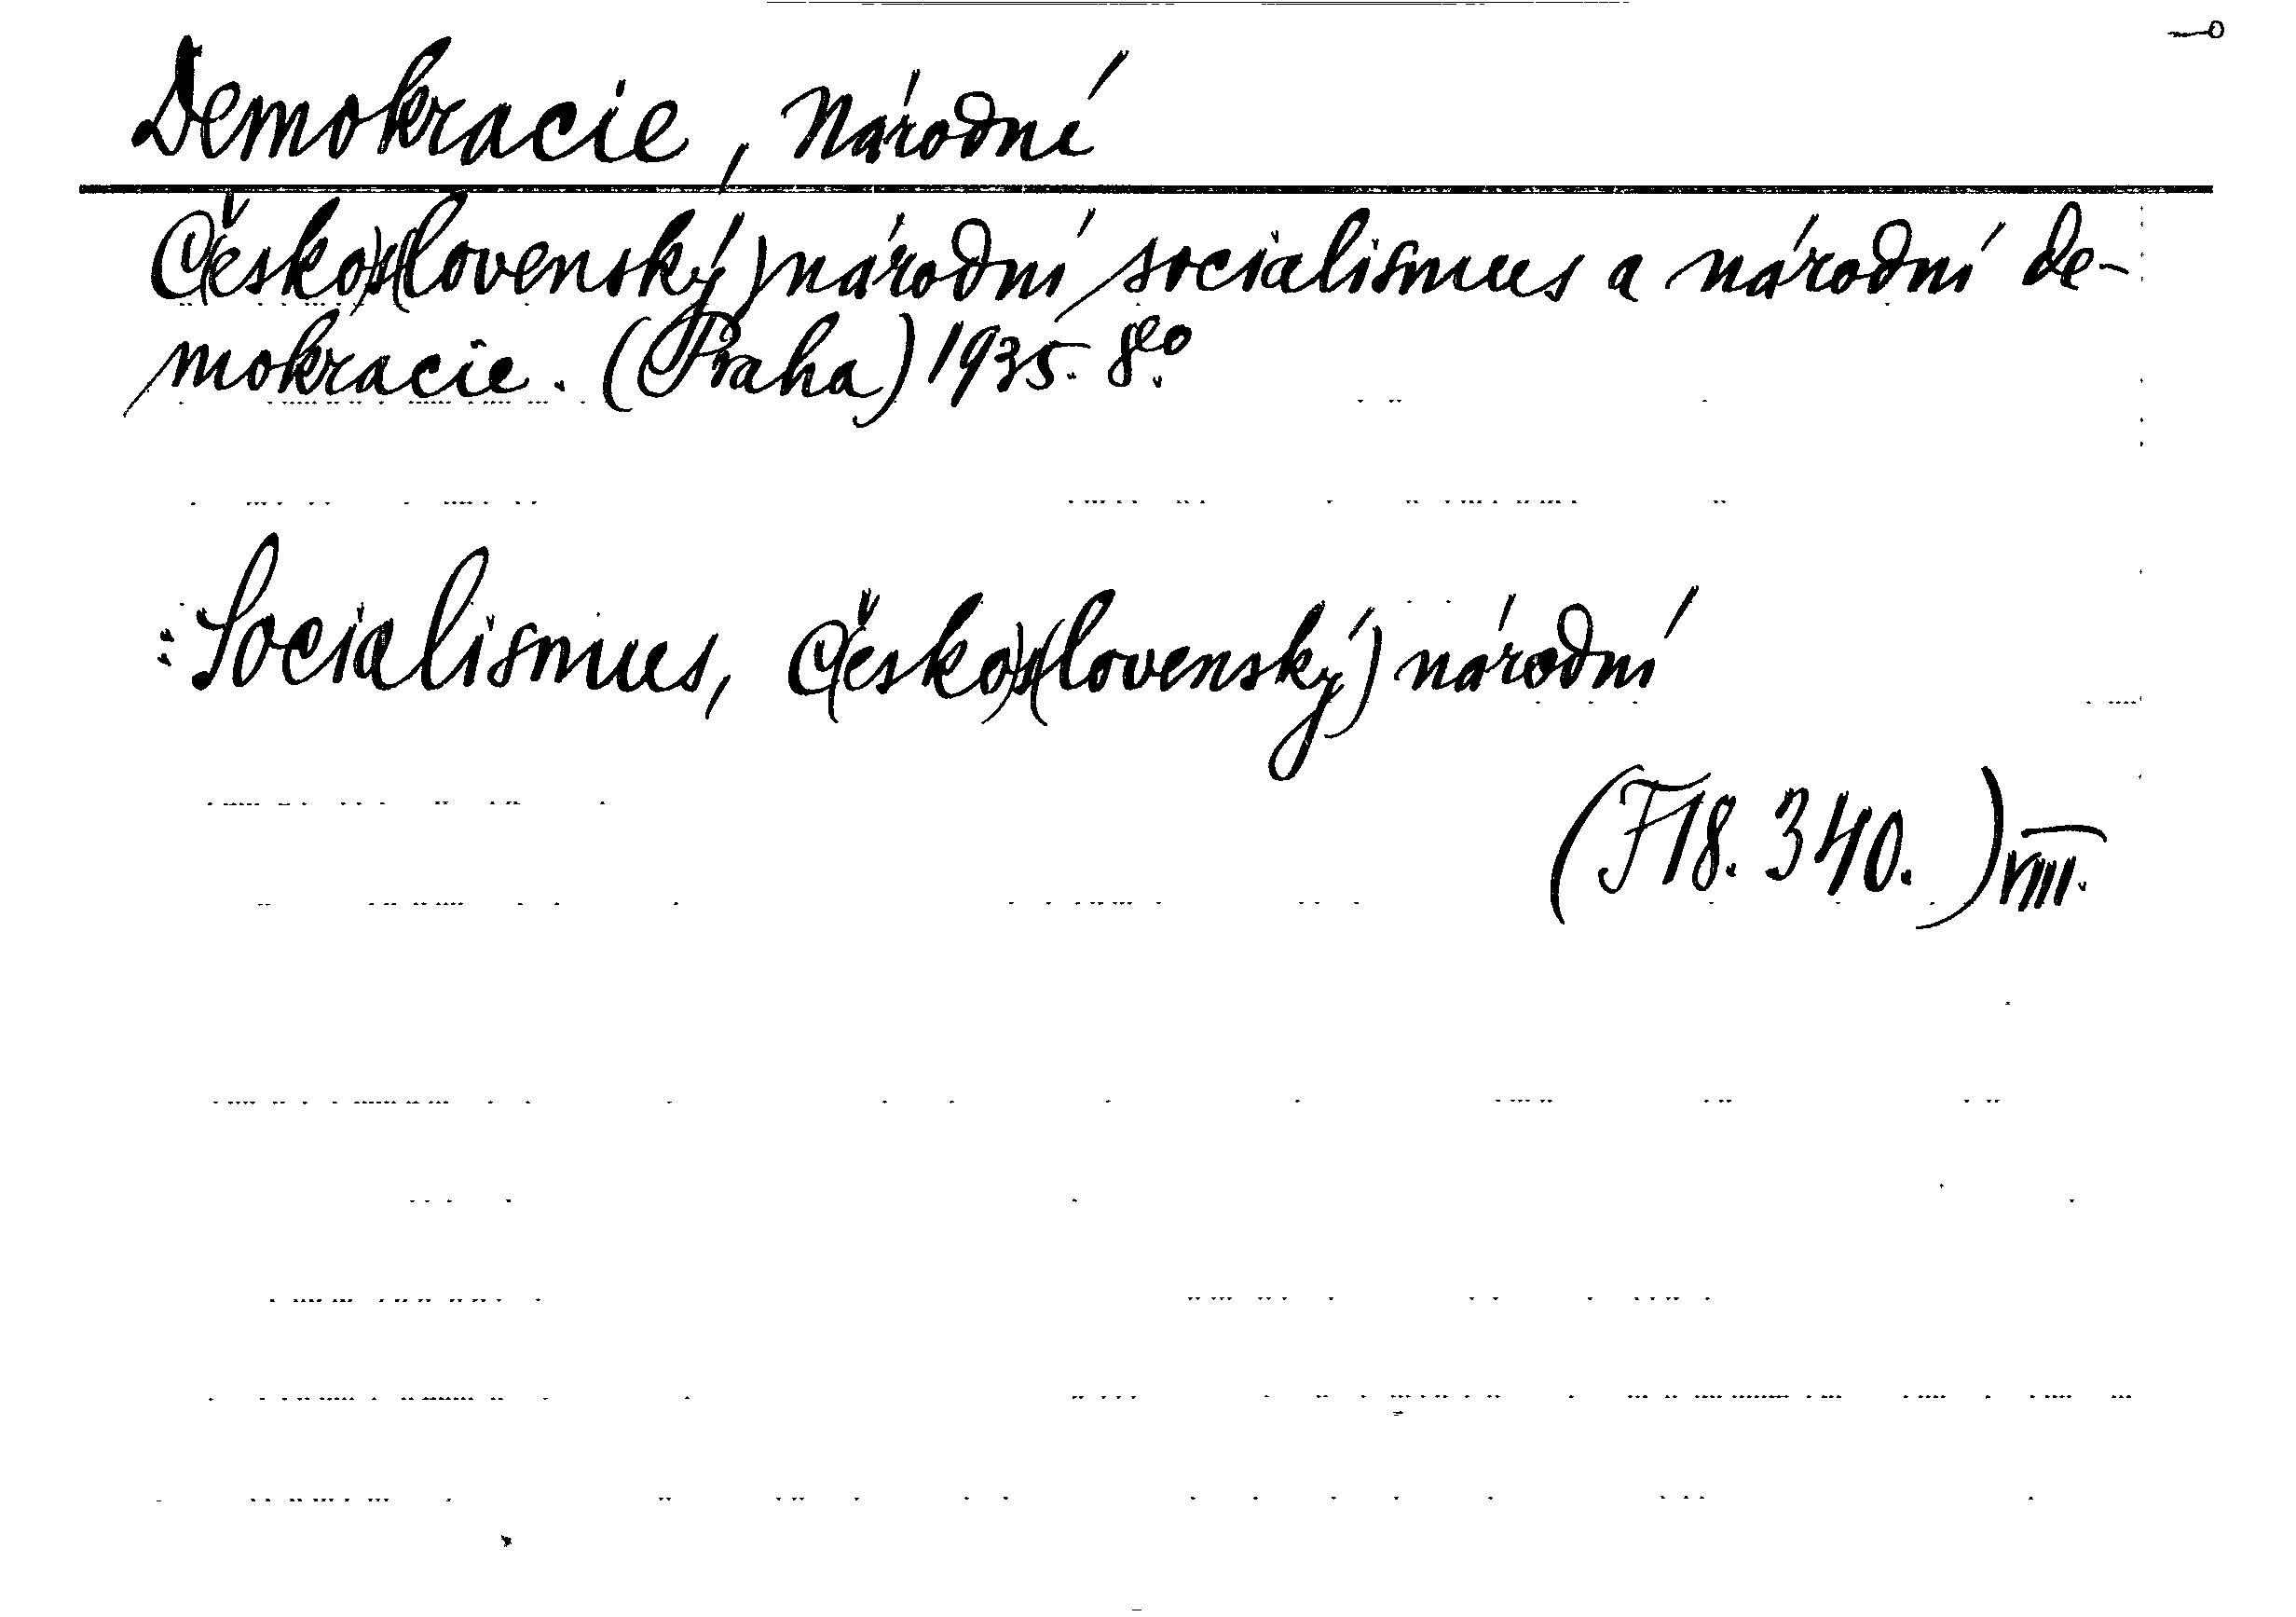 Demokracie, Národní
Č(esko)s(lovenský) národní socialismus a národní de-
mokracie. (Praha) 1935. 8º.
: Socialismus, Č(esko)s(lovenský) národní
(F 18. 340.) VIII.